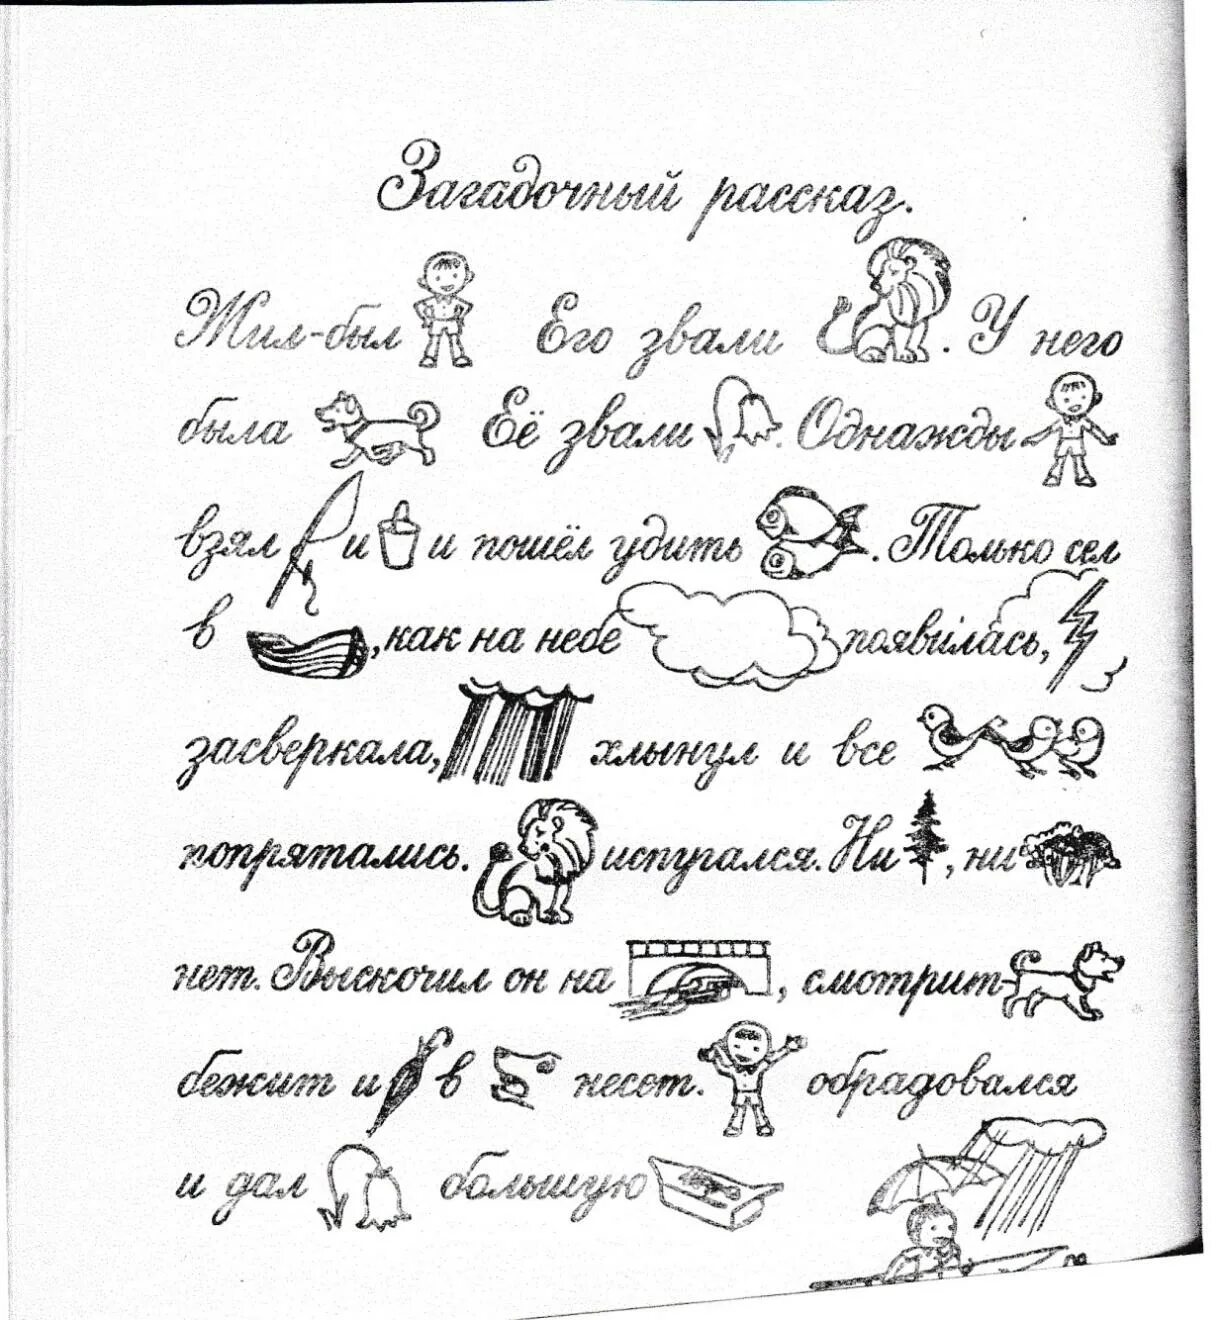 Загадочный рассказ.
Жил-был Его звали . У него
была Её звали . Однажды
взял и и пошёл удить . Только сел
в , как на небе появилась,
засверкала, хлынул и все
попрятались. испугался. Ни , ни
нет. Выскочил он на , смотрит-
бежит и в несет. обрадовался
и дал большую